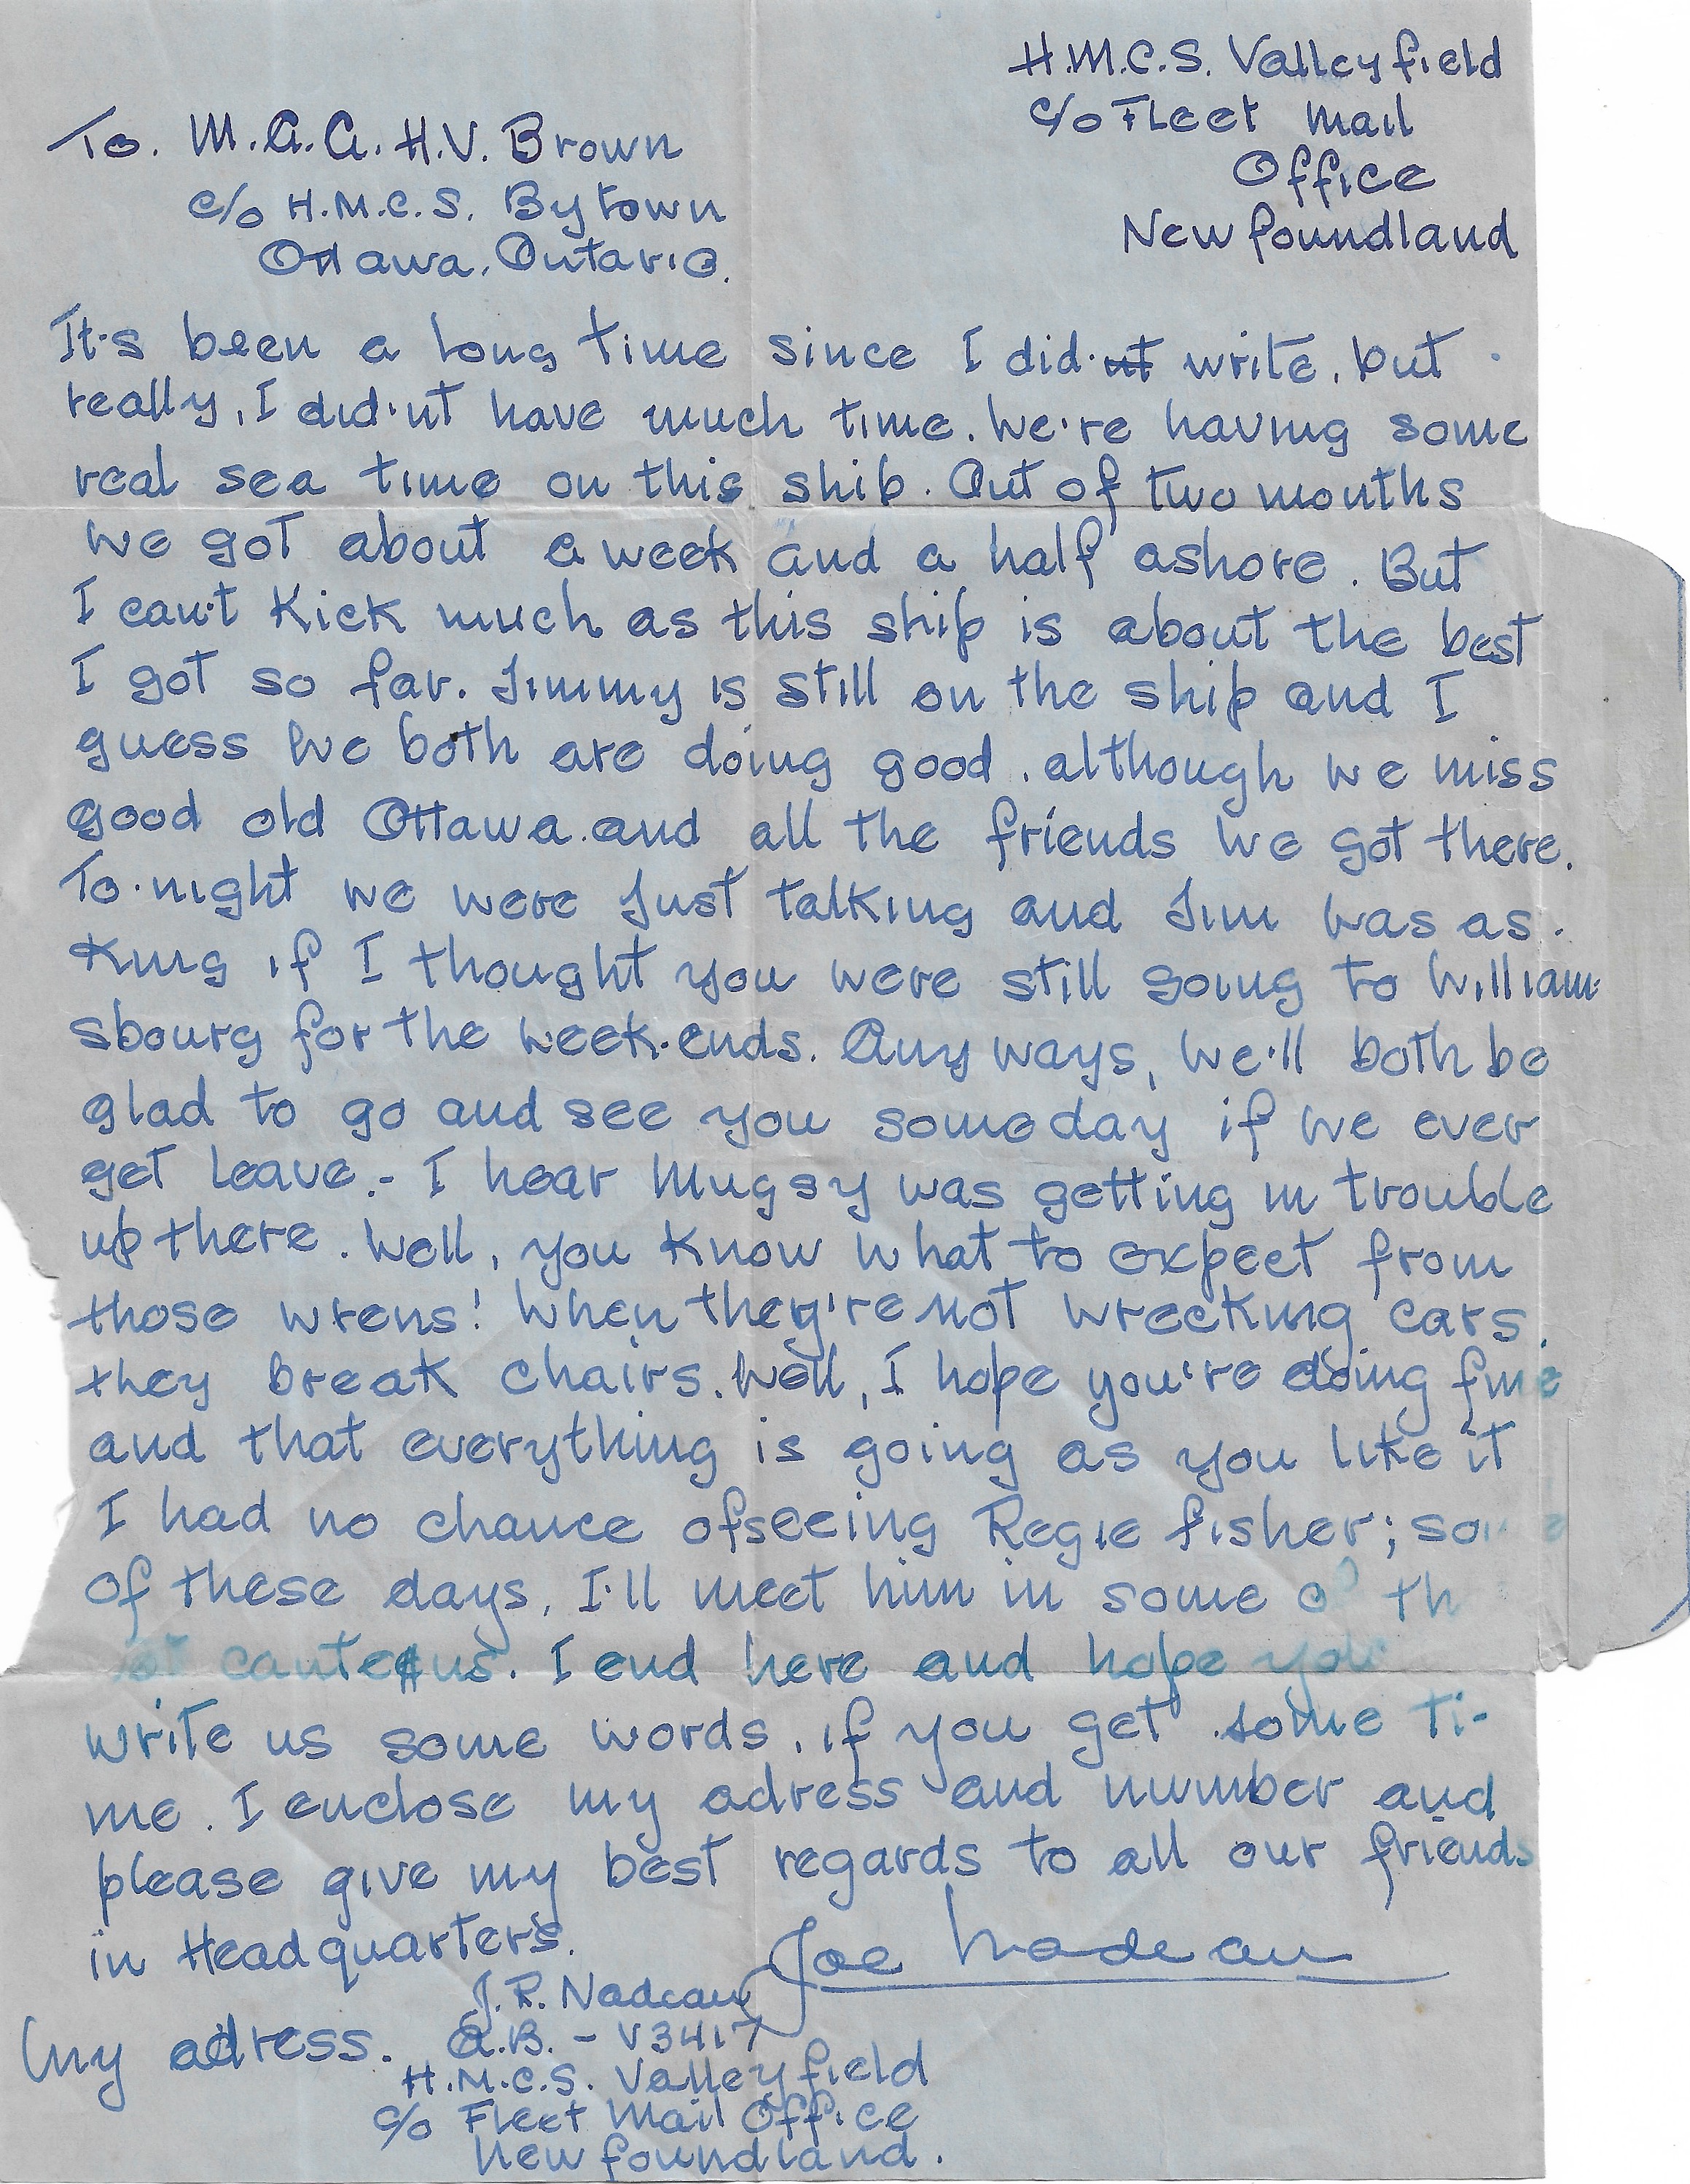 H.M.C.S. Valleyfield
c/o Fleet Mail
Office
Newfoundland
To. M.A.A. H.V. Brown
c/o H.M.C.S. Bytown
Ottawa, Ontario.
It's been a long time since I did'nt write, but
really, I did'nt have much time. We're having some
real sea time on this ship. Out of two months
we got about a week and a half ashore. But
I can't kick much as this ship is about the best
I got so far. Jimmy is still on the ship and I
guess we both are doing good, although we miss
good old Ottawa and all the friends we got there.
To-night we were just talking and Jim was as-
king if I thought you were still going to William-
sbourg for the week-ends. Any ways, we'll both be
glad to go and see you someday if we ever
get leave.- I hear Mugsy was getting in trouble
up there. Well, you know what to expect from
those wrens! When they're not wrecking cars,
they break chairs. Well, I hope you're doing fine
and that everything is going as you like it
I had no chance of seeing Regie Fisher; some
of these days, I'll meet him in some of th
canteens. I end here and hope you
write us some words, if you get some ti-
me. I enclose my adress and number and
please give my best regards to all our friends
in Headquarters.
Joe Nadeau
My adress. J.R. Nadeau
A.B. - V3417
H.M.C.S. Valleyfield
c/o Fleet Mail Office
Newfoundland.